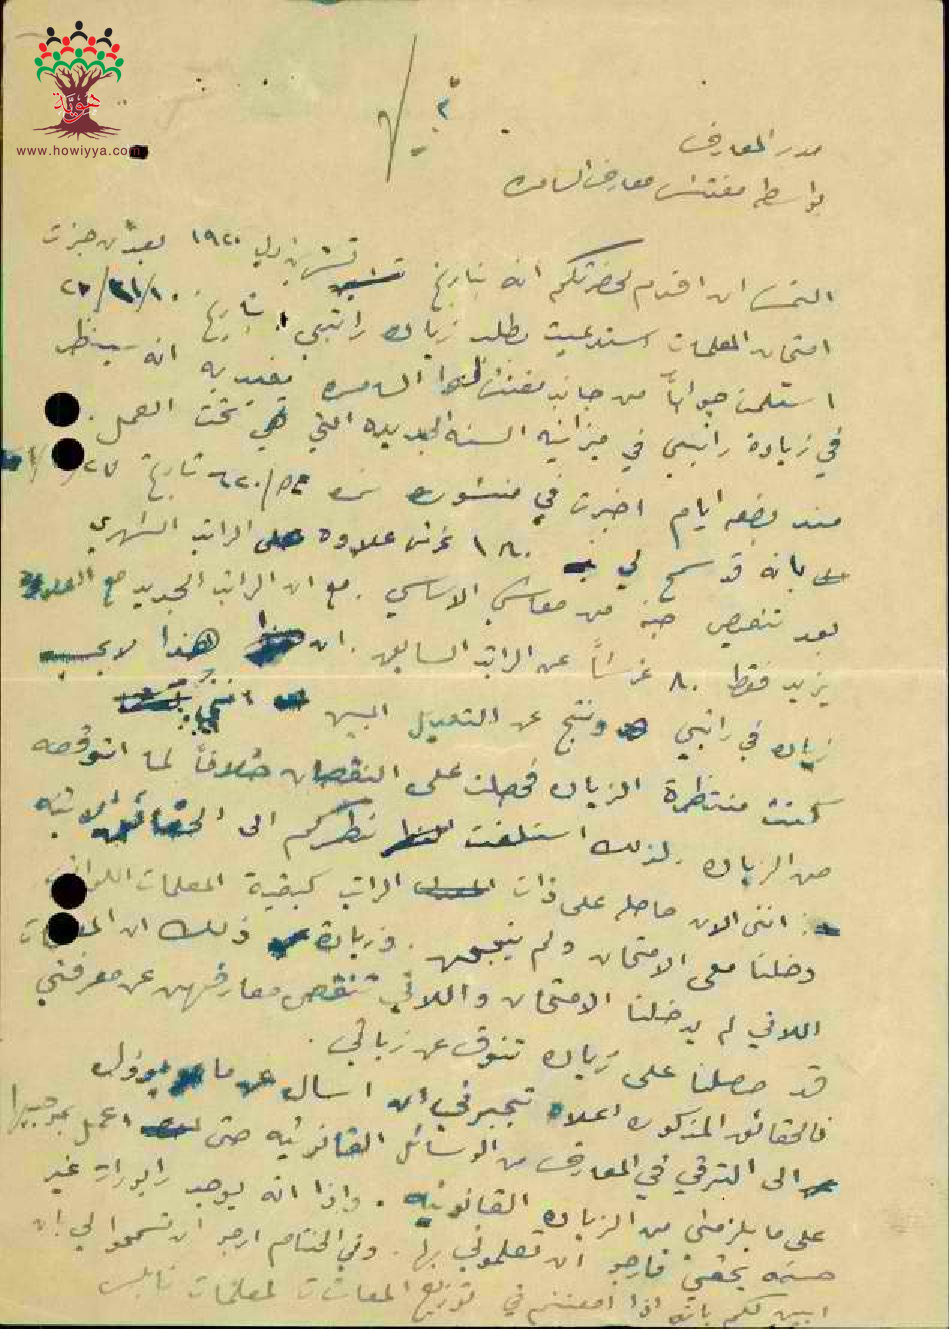 هوية
www.howiyya.com
مدير المعارف
بواسطة مفتش معارف السامره
التمس ان اقدم لحضرتكم انه بتاريخ تشرين اول ١٩٢٠ بعد ان جزت
امتحان المعلمات استدعيت بطلب زياده راتبي بتاريخ
استلمت جواباً من جانب مفتش لواء السامره يفيد به انه سينظر
في زيادة راتبي في ميزانية السنه الجديده التي هي تحت العمل.
منذ بضعة ايام اخبرت في منشوره نمره ٦٢٠ تاريخ
بانه قد سمح لي ١٨٠ غرش علاوه على الراتب الشهري
بعد تنقيص جنيه من معاشي الاساسي. مع ان الراتب الجديد مع العلاوه
يزيد فقط ٨٠ غرشاً عن الراتب السابق. ان هذا لا يحسب
زياده في راتبي ونتج عن التعديل انني
كنت منتظرة الزياده فحصلت على النقصان خلافاً لما اتوقعه
من الزياده. لذلك استلفت نظركم الى الحقائق الاتيه
انني الان حاصله على ذات الراتب كبقية المعلمات اللواتي
دخلنا معي الامتحان ولم ينجحن. وزيادة عن ذلك ان المعلمات
اللاتي لم يدخلنا الامتحان واللاتي تنقص معارفهن عن معرفتي
قد حصلنا على زياده تفوق عن زيادتي.
فالحقائق المذكوره اعلاه تجبرني ان اسال عن ما يؤول
الى الترقي في المعارف من الوسائل القانونيه حتى اعمل بموجبها
على ما يلزمني من الزياده القانونيه. واذا انه يوجد رابورات غير
حسنه بحقي فارجو ان تعلموني بها. وفي الختام ارجو ان تسمحوا لي بان
ابين لكم بانه اذا امعنتم في توزيع المعاشات لمعلمات نابلس